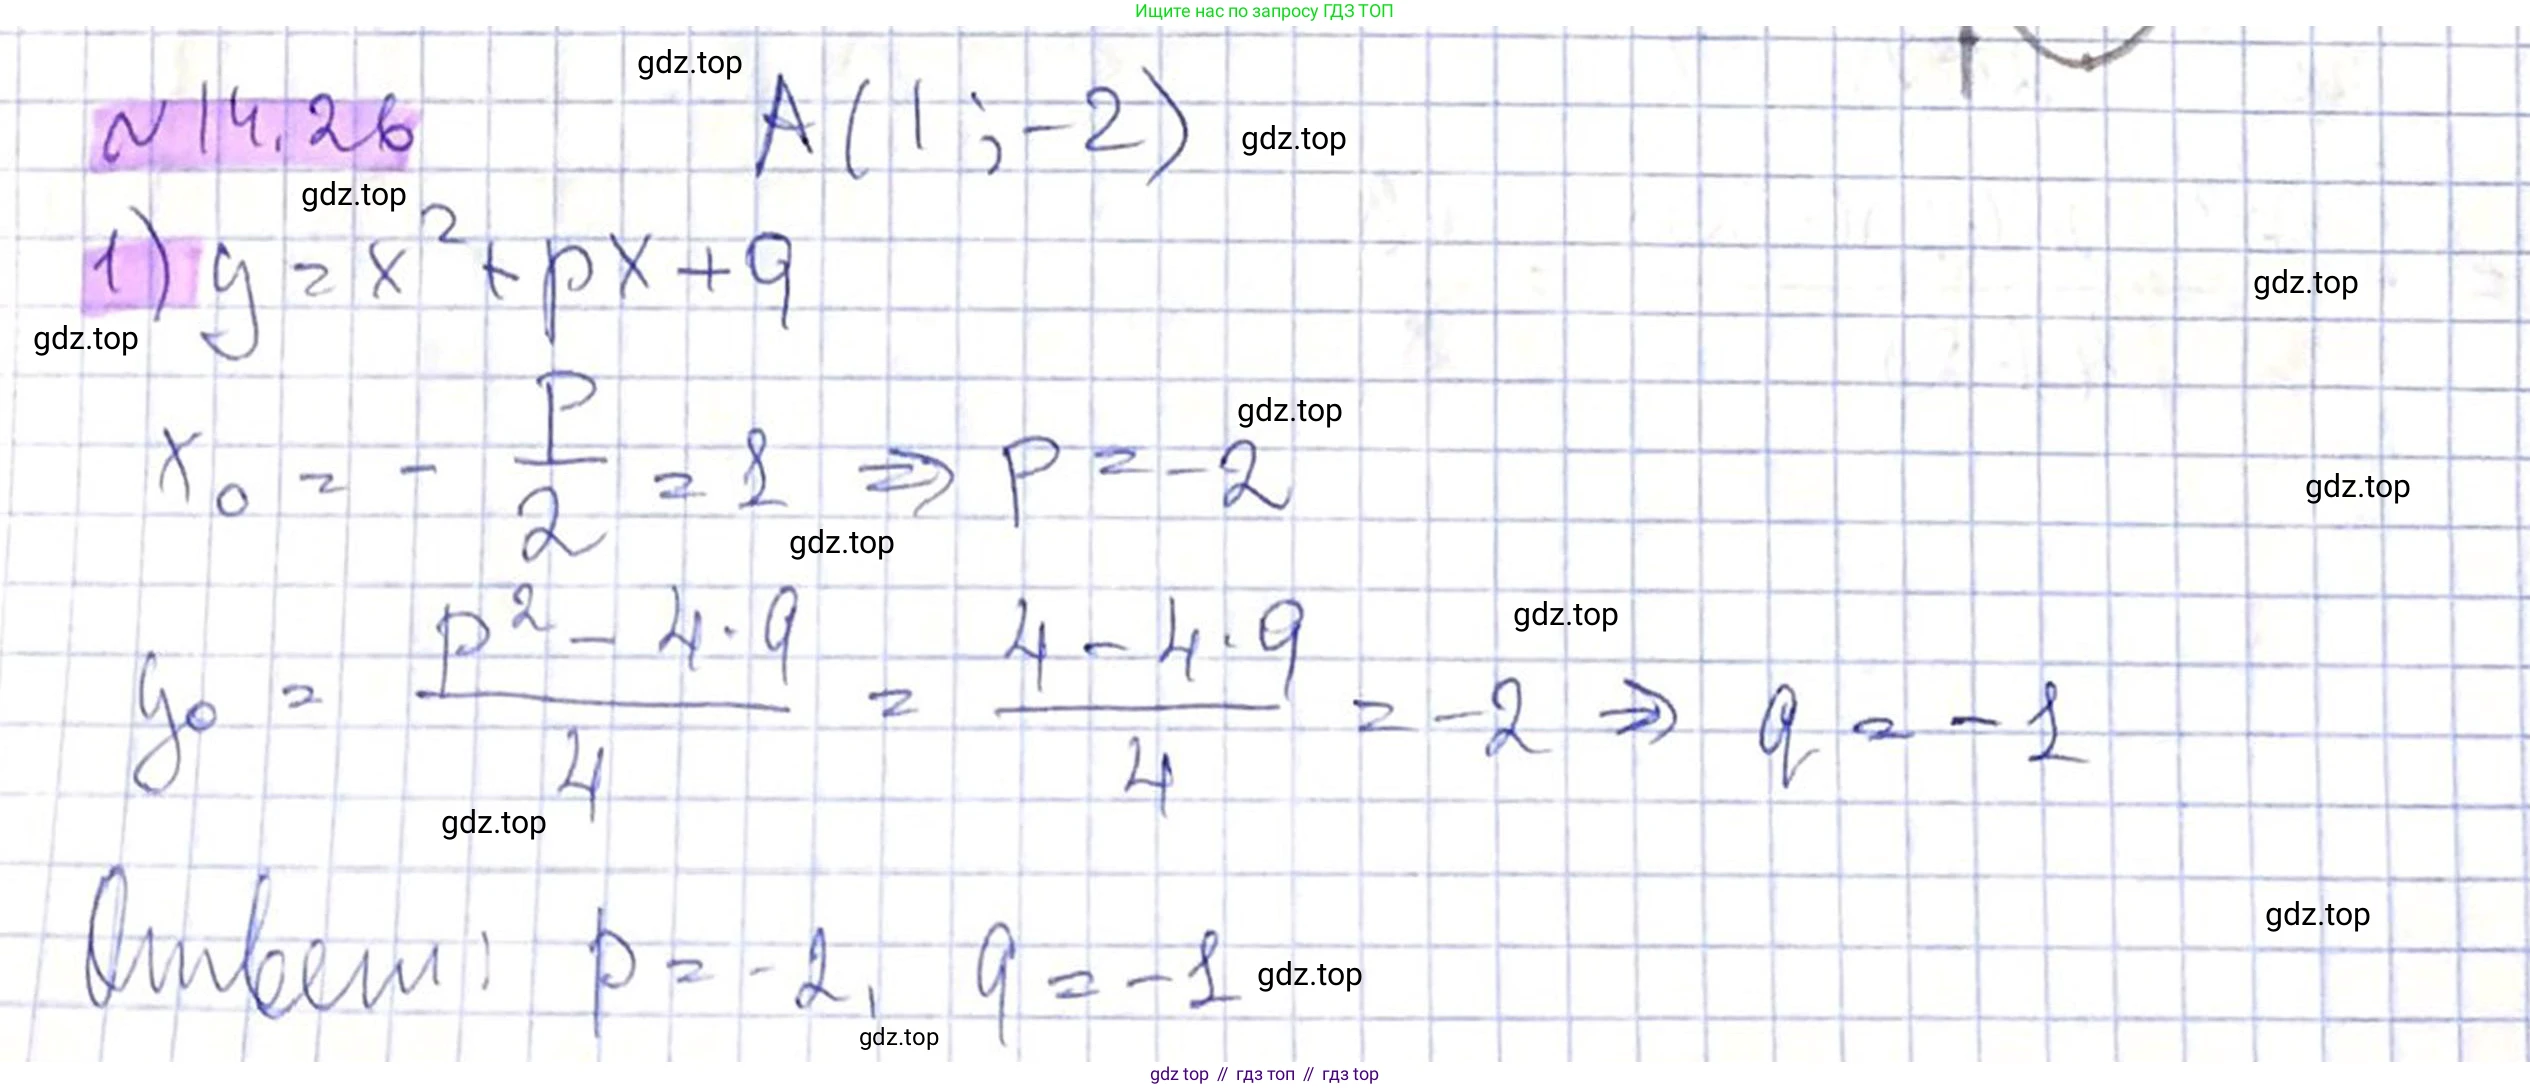 Ищите нас по запросу ГДЗ ТОП
gdz.top
№14.26 A(1;-2)
gdz.top
gdz.top
1) y = x² + px + q
gdz.top
gdz.top
gdz.top
x₀ = - p/2 = 1 ⇒ p = -2
gdz.top
gdz.top
gdz.top
y₀ = (p² - 4·q)/4 = (4 - 4·q)/4 = -2 ⇒ q = -1
gdz.top
gdz.top
Ответ: p = -2, q = -1
gdz.top
gdz.top
gdz top // гдз топ // гдз top